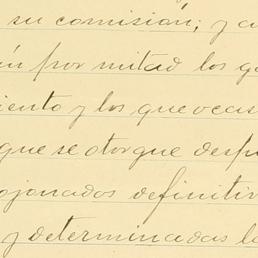 su comisión; y a
ún por mitad los g
iento y los que ocas
que se otorgue desp
ojonados definitiv
y determinadas la